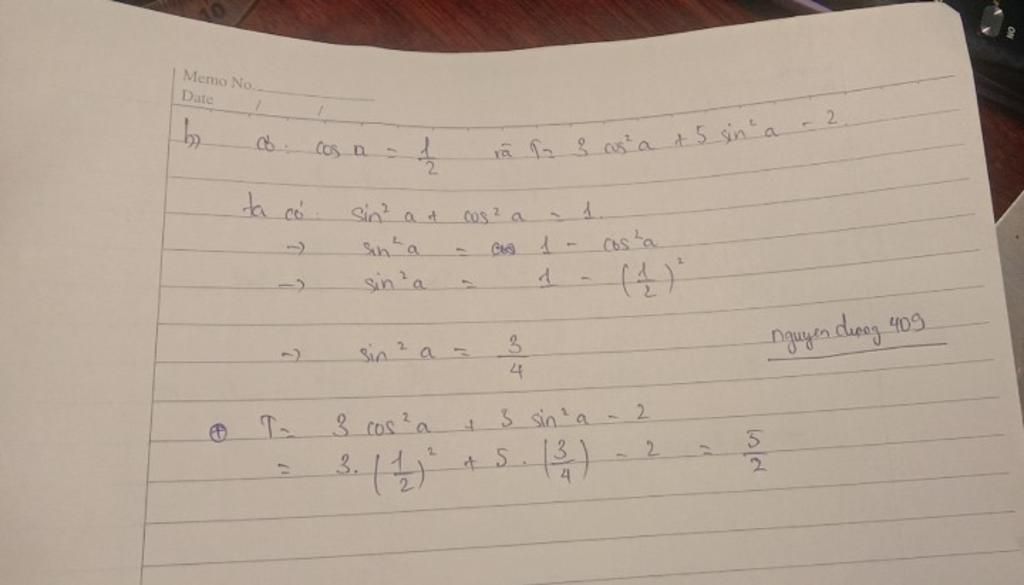 Memo No.
Date / /
b) có: cos a = 1/2 và T = 3 cos²a + 5 sin²a - 2
ta có: sin² a + cos² a = 1.
→ sin²a = 1 - cos²a
→ sin²a = 1 - (1/2)²
→ sin² a = 3/4
nguyenduong409
⊕ T = 3 cos²a + 3 sin²a - 2
= 3. (1/2)² + 5. (3/4) - 2 = 5/2